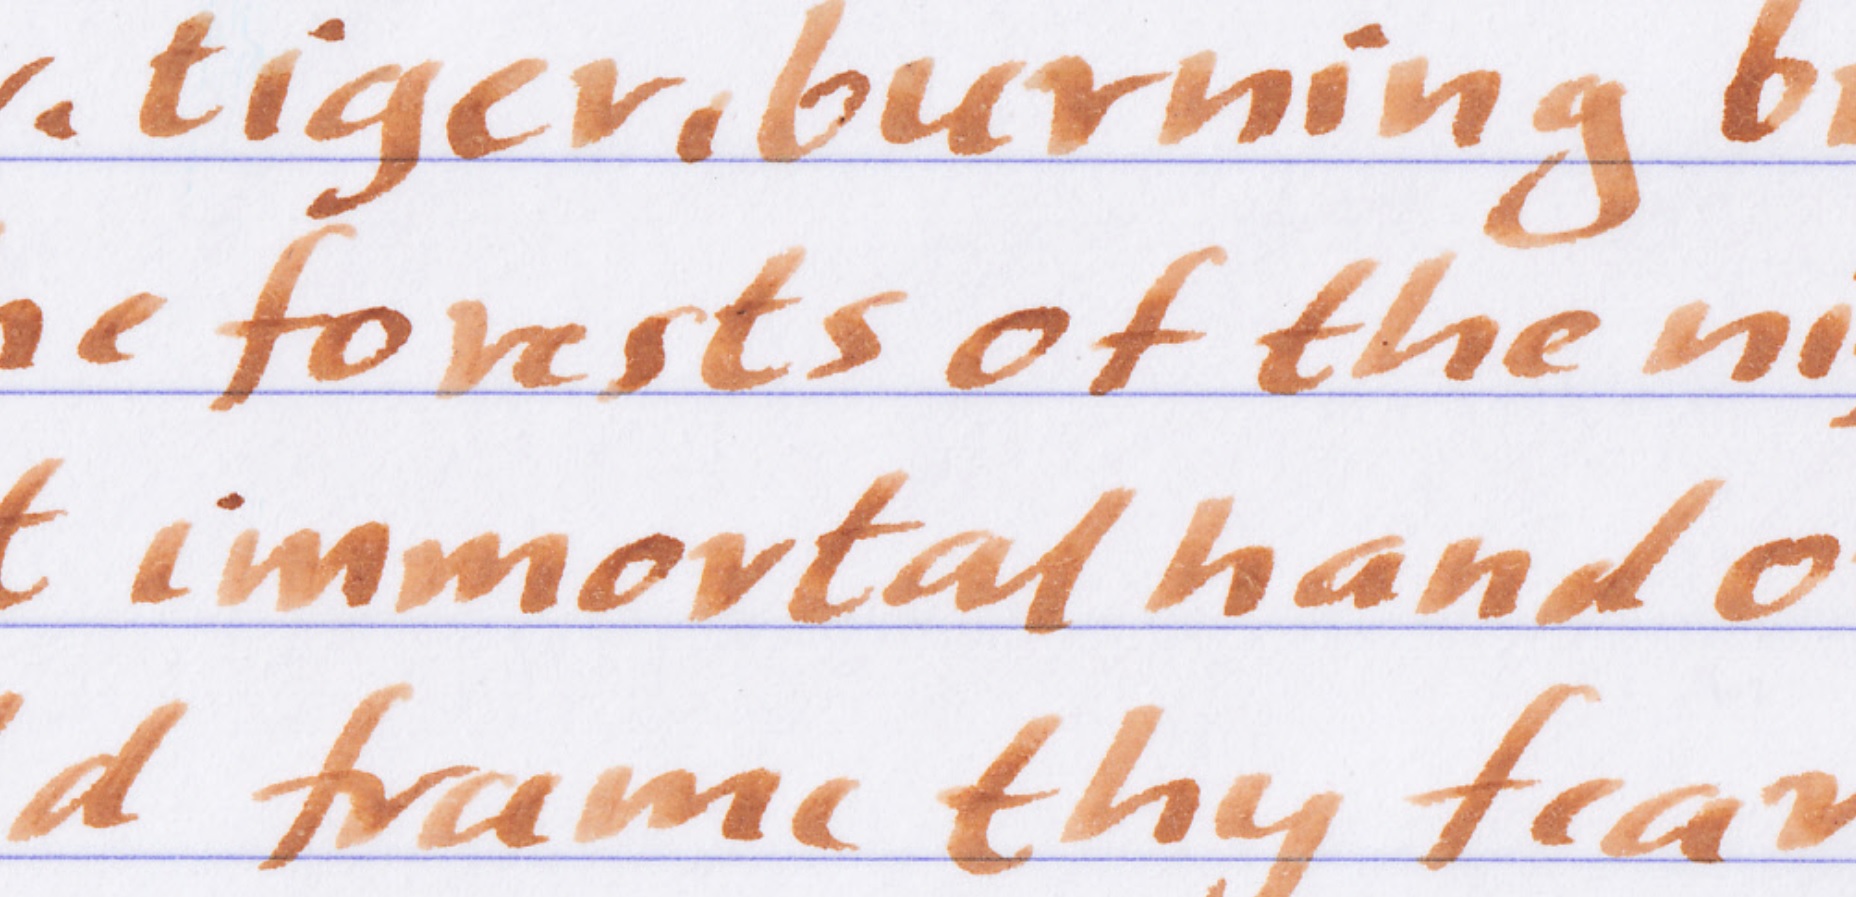 r, tiger, burning br
he forests of the ni
t immortal hand o
ld frame thy fear